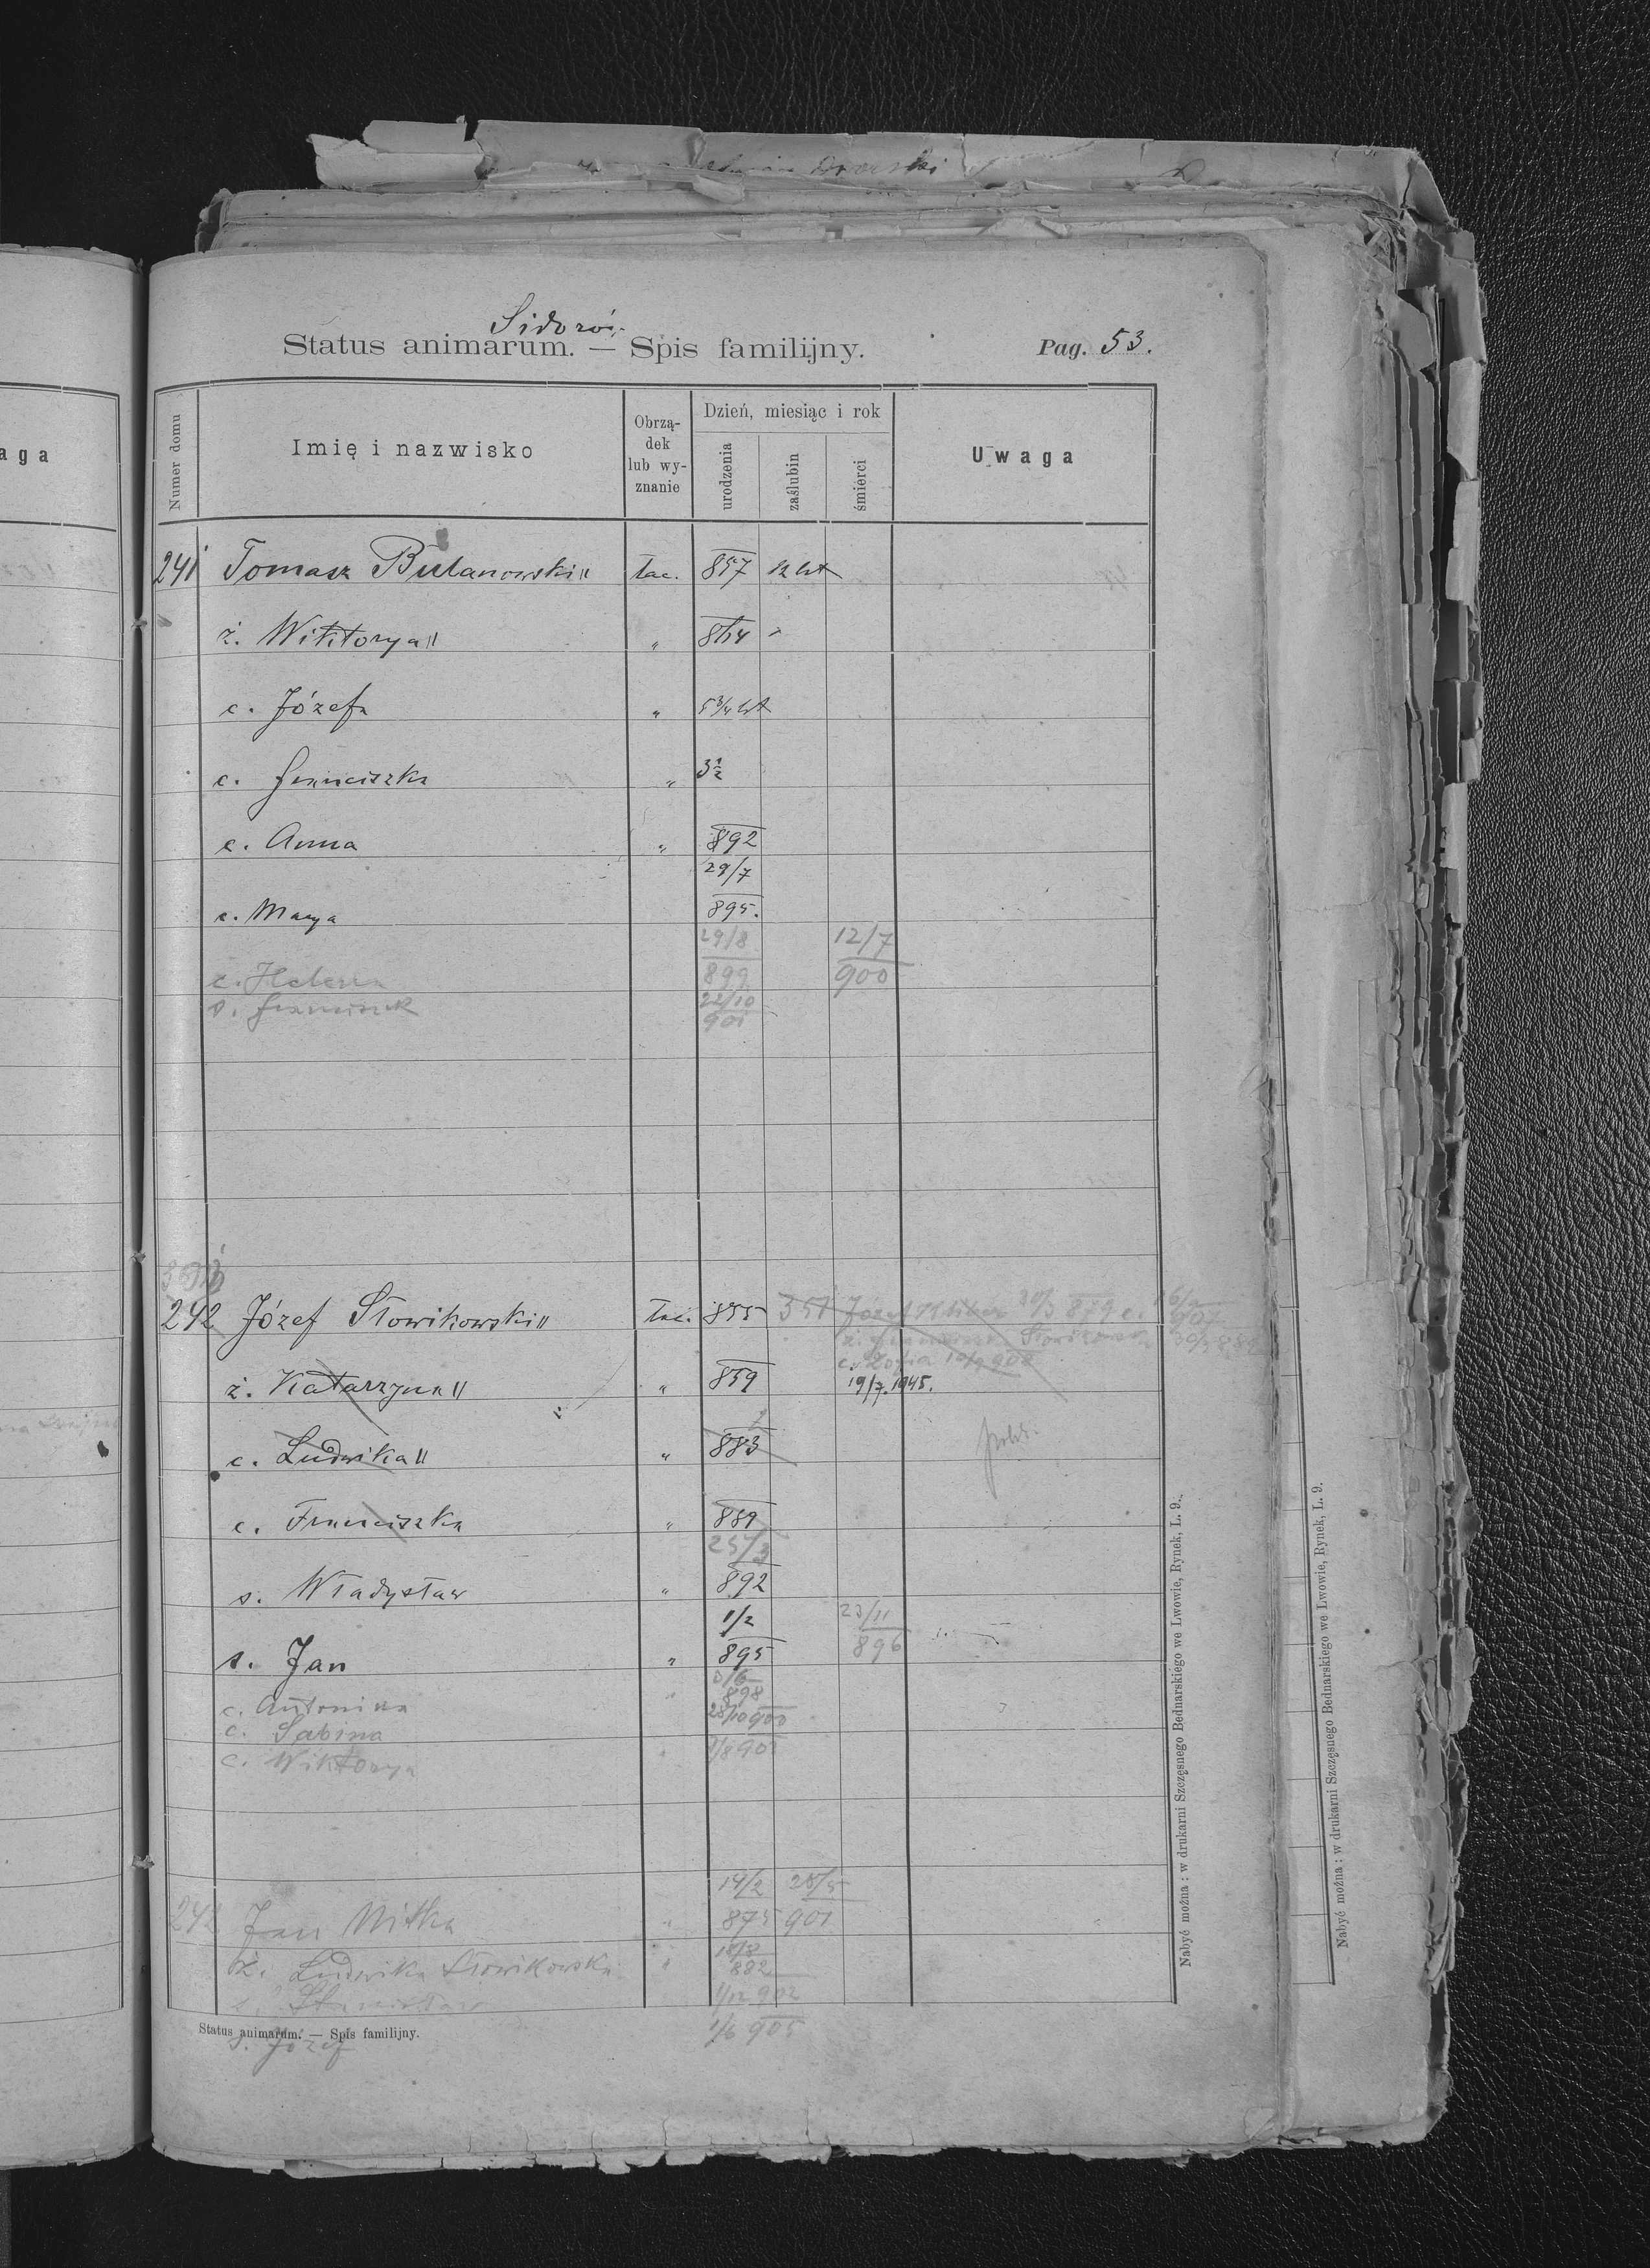 Sidorów
Status animarum. — Spis familijny.
Pag. 53.
Numer domu
Imię i nazwisko
Obrzą-
dek
lub wy-
znanie
Dzień, miesiąc i rok
urodzenia
zaślubin
śmierci
Uwaga
aga
241 Tomasz Bulanowski łac. 857 12 lat
ż. Wiktorya " 864 "
c. Józefa " 5 3/4 lat
c. Franciszka " 3 1/2
c. Anna " 892
29/7
c. Marya 895.
29/8 12/7
c. Helena 899 900
s. Franciszek 22/10
901
242 Józef Słowikowski łac. 855 351 Józef 20/3 879
Słowikowska
c. Zofia 10/9 900
ż. Katarzyna " 859 19/7. 1945.
c. Ludwika " 883
c. Franciszka " 889
25/3
s. Władysław " 892
1/2 23/11
s. Jan " 895 896
c. Antonina " 898
c. Sabina 28/10 900
c. Wiktorya
14/2 28/5
242 Jan Nitka " 875 901
ż. Ludwika Słowikowska " 18/8
882
s. Stanisław 1/12 902
s. Józef 1/6 905
Status animarum. — Spis familijny.
Nabyć można: w drukarni Szczęsnego Bednarskiego we Lwowie, Rynek, L. 9.
Nabyć można: w drukarni Szczęsnego Bednarskiego we Lwowie, Rynek, L. 9.